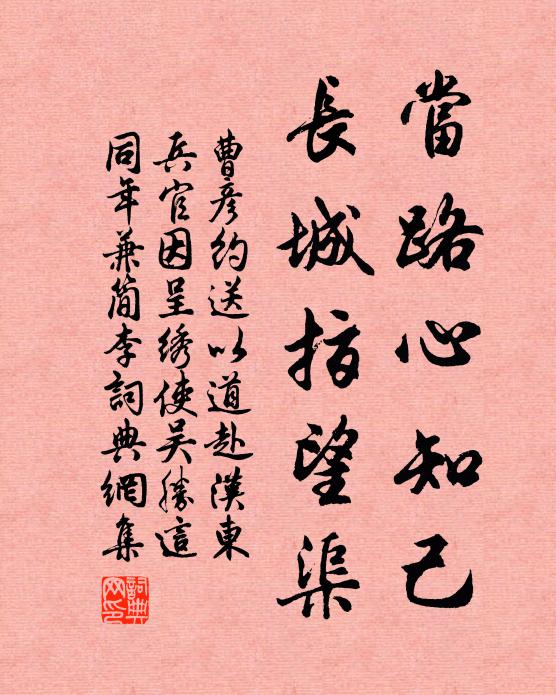 當路心知己
長城指望渠
曹彥約送以道赴漢東
兵官因呈綉使吴勝這
同年兼簡李詞典網集
詞典網印